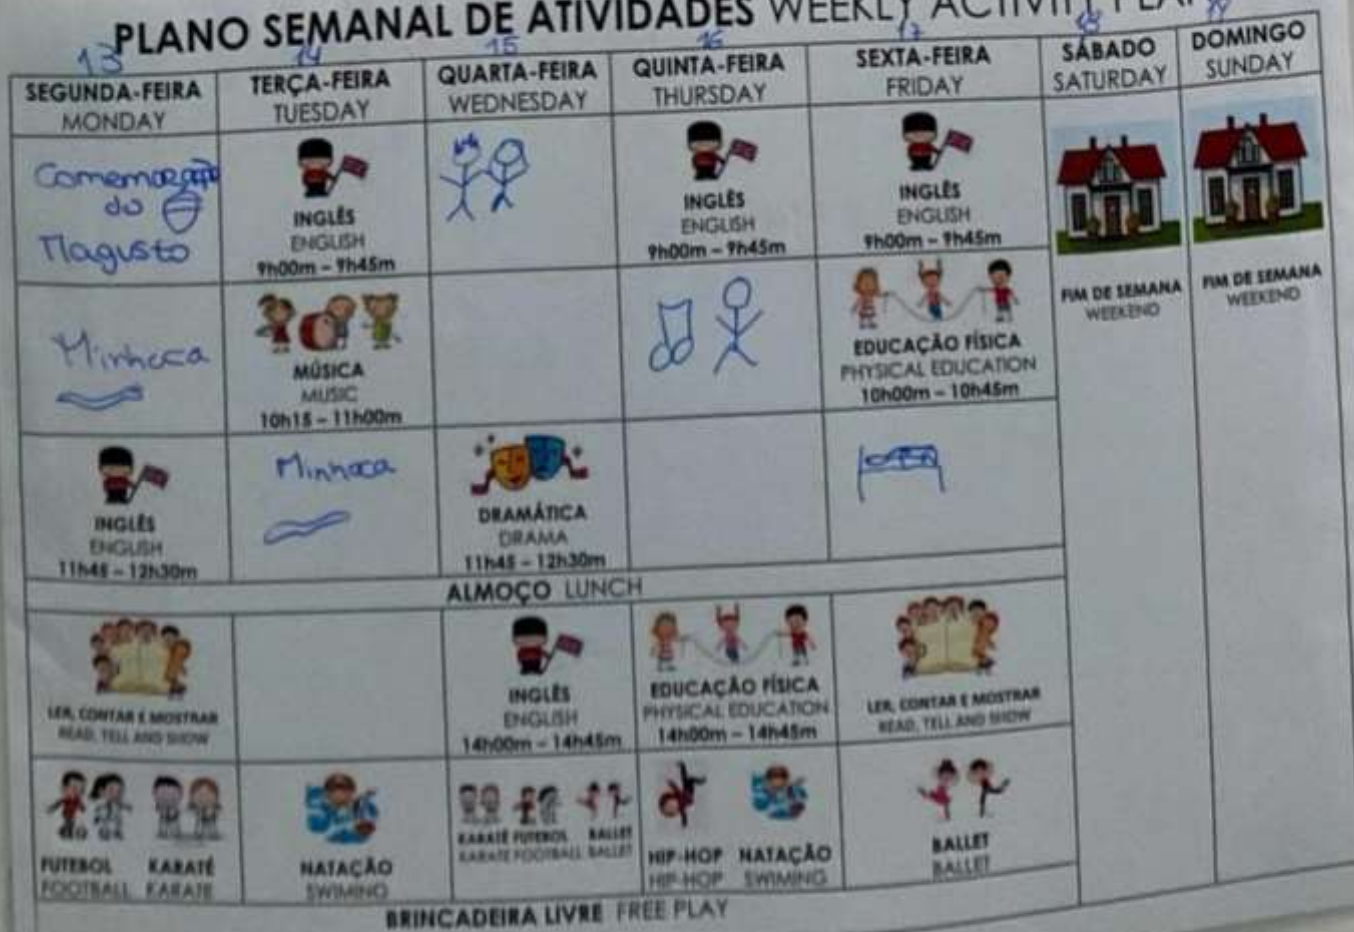 PLANO SEMANAL DE ATIVIDADES WEEKLY ACTIVITY PLAN
13 14 15 16 17 18 19
SEGUNDA-FEIRA TERÇA-FEIRA QUARTA-FEIRA QUINTA-FEIRA SEXTA-FEIRA SÁBADO DOMINGO
MONDAY TUESDAY WEDNESDAY THURSDAY FRIDAY SATURDAY SUNDAY
Comemoração
do
Magusto
INGLÊS
ENGLISH
9h00m – 9h45m
INGLÊS
ENGLISH
9h00m – 9h45m
INGLÊS
ENGLISH
9h00m – 9h45m
FIM DE SEMANA
WEEKEND
FIM DE SEMANA
WEEKEND
Minhoca
MÚSICA
MUSIC
10h15 – 11h00m
EDUCAÇÃO FÍSICA
PHYSICAL EDUCATION
10h00m – 10h45m
INGLÊS
ENGLISH
11h45 – 12h30m
Minhoca
DRAMÁTICA
DRAMA
11h45 – 12h30m
ALMOÇO LUNCH
LER, CONTAR E MOSTRAR
READ, TELL AND SHOW
INGLÊS
ENGLISH
14h00m – 14h45m
EDUCAÇÃO FÍSICA
PHYSICAL EDUCATION
14h00m – 14h45m
LER, CONTAR E MOSTRAR
READ, TELL AND SHOW
FUTEBOL KARATÉ
FOOTBALL KARATE
NATAÇÃO
SWIMING
KARATÉ FUTEBOL BALLET
KARATE FOOTBALL BALLET
HIP-HOP NATAÇÃO
HIP-HOP SWIMING
BALLET
BALLET
BRINCADEIRA LIVRE FREE PLAY